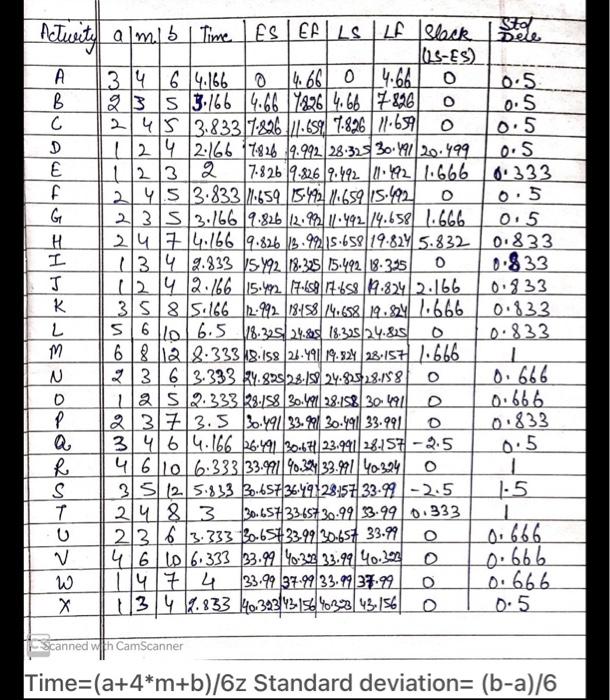 Activity a m b Time ES EF LS LF Slack (LS-ES) Std
A 3 4 6 4.166 0 4.66 0 4.66 0 0.5
B 2 3 5 3.166 4.66 7.826 4.66 7.826 0 0.5
C 2 4 5 3.833 7.826 11.659 7.826 11.659 0 0.5
D 1 2 4 2.166 7.826 9.992 28.325 30.491 20.499 0.5
E 1 2 3 2 7.826 9.826 9.492 11.492 1.666 0.333
F 2 4 5 3.833 11.659 15.492 11.659 15.492 0 0.5
G 2 3 5 3.166 9.826 12.992 11.492 14.658 1.666 0.5
H 2 4 7 4.166 9.826 13.992 15.658 19.824 5.832 0.833
I 1 3 4 2.833 15.492 18.325 15.492 18.325 0 0.833
J 1 2 4 2.166 15.492 17.658 17.658 19.824 2.166 0.833
K 3 5 8 5.166 12.992 18.158 14.658 19.824 1.666 0.833
L 5 6 10 6.5 18.325 24.825 18.325 24.825 0 0.833
M 6 8 12 8.333 18.158 26.491 19.824 28.157 1.666 1
N 2 3 6 3.333 24.825 28.158 24.825 28.158 0 0.666
O 1 2 5 2.333 28.158 30.491 28.158 30.491 0 0.666
P 2 3 7 3.5 30.491 33.991 30.491 33.991 0 0.833
Q 3 4 6 4.166 26.491 30.671 23.991 28.157 -2.5 0.5
R 4 6 10 6.333 33.991 40.324 33.991 40.324 0 1
S 3 5 12 5.833 30.657 36.49 28.157 33.99 -2.5 1.5
T 2 4 8 3 30.657 33.657 30.99 33.99 0.333 1
U 2 3 6 3.333 30.657 33.99 30.657 33.99 0 0.666
V 4 6 10 6.333 33.99 40.323 33.99 40.323 0 0.666
W 1 4 7 4 33.99 37.99 33.99 37.99 0 0.666
X 1 3 4 2.833 40.323 43.156 40.323 43.156 0 0.5
Scanned with CamScanner
Time=(a+4*m+b)/6z Standard deviation= (b-a)/6